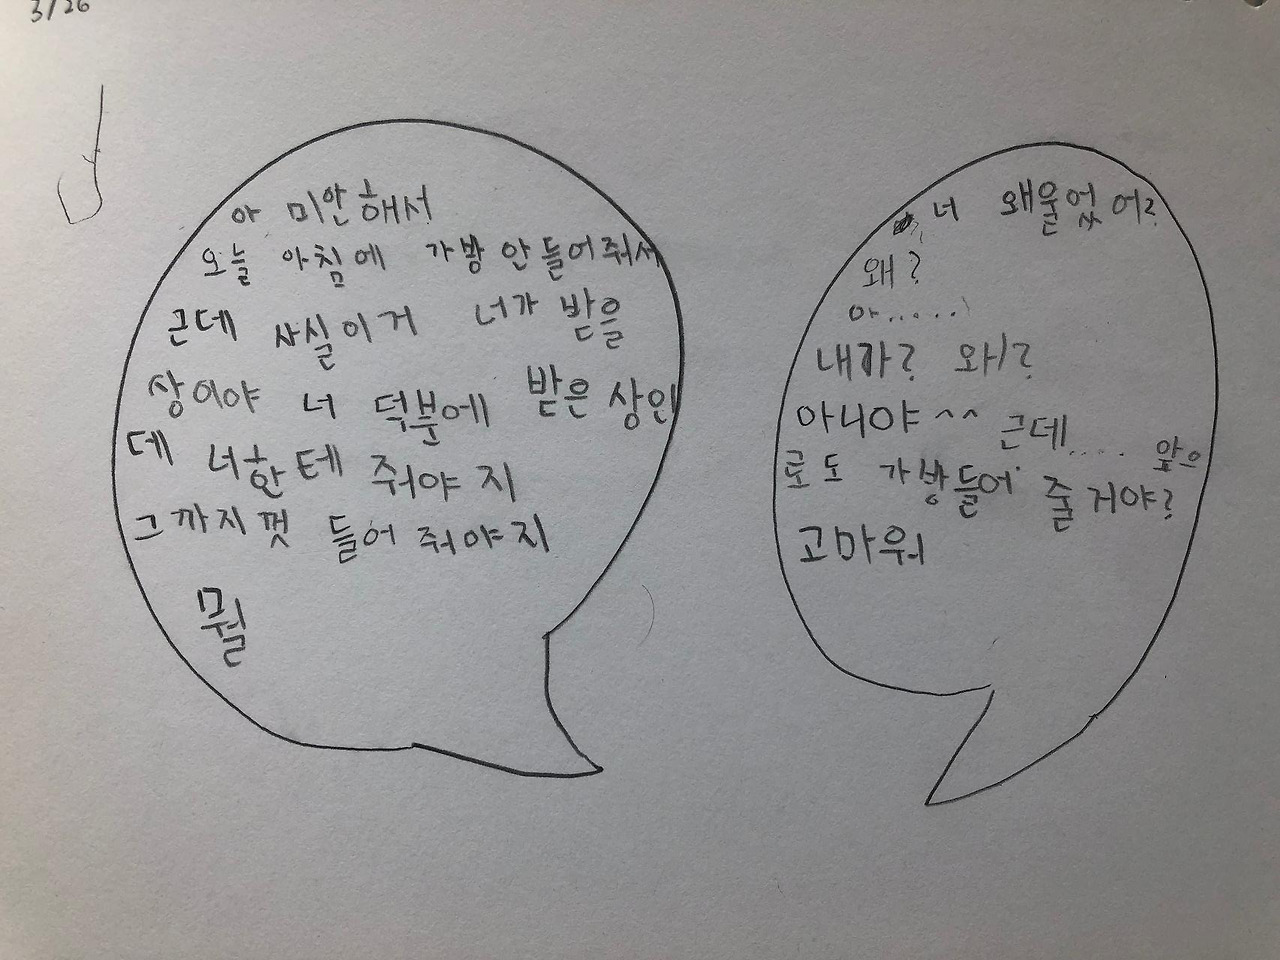 3/26
아 미안해서
오늘 아침에 가방 안들어줘서
근데 사실이거 너가 받을
상이야 너 덕분에 받은 상인
데 너한테 줘야지
그까지껏 들어줘야지
뭘
너 왜울었어?
왜?
아.....
내가? 왜?
아니야^^ 근데.... 앞으
로도 가방들어 줄거야?
고마워